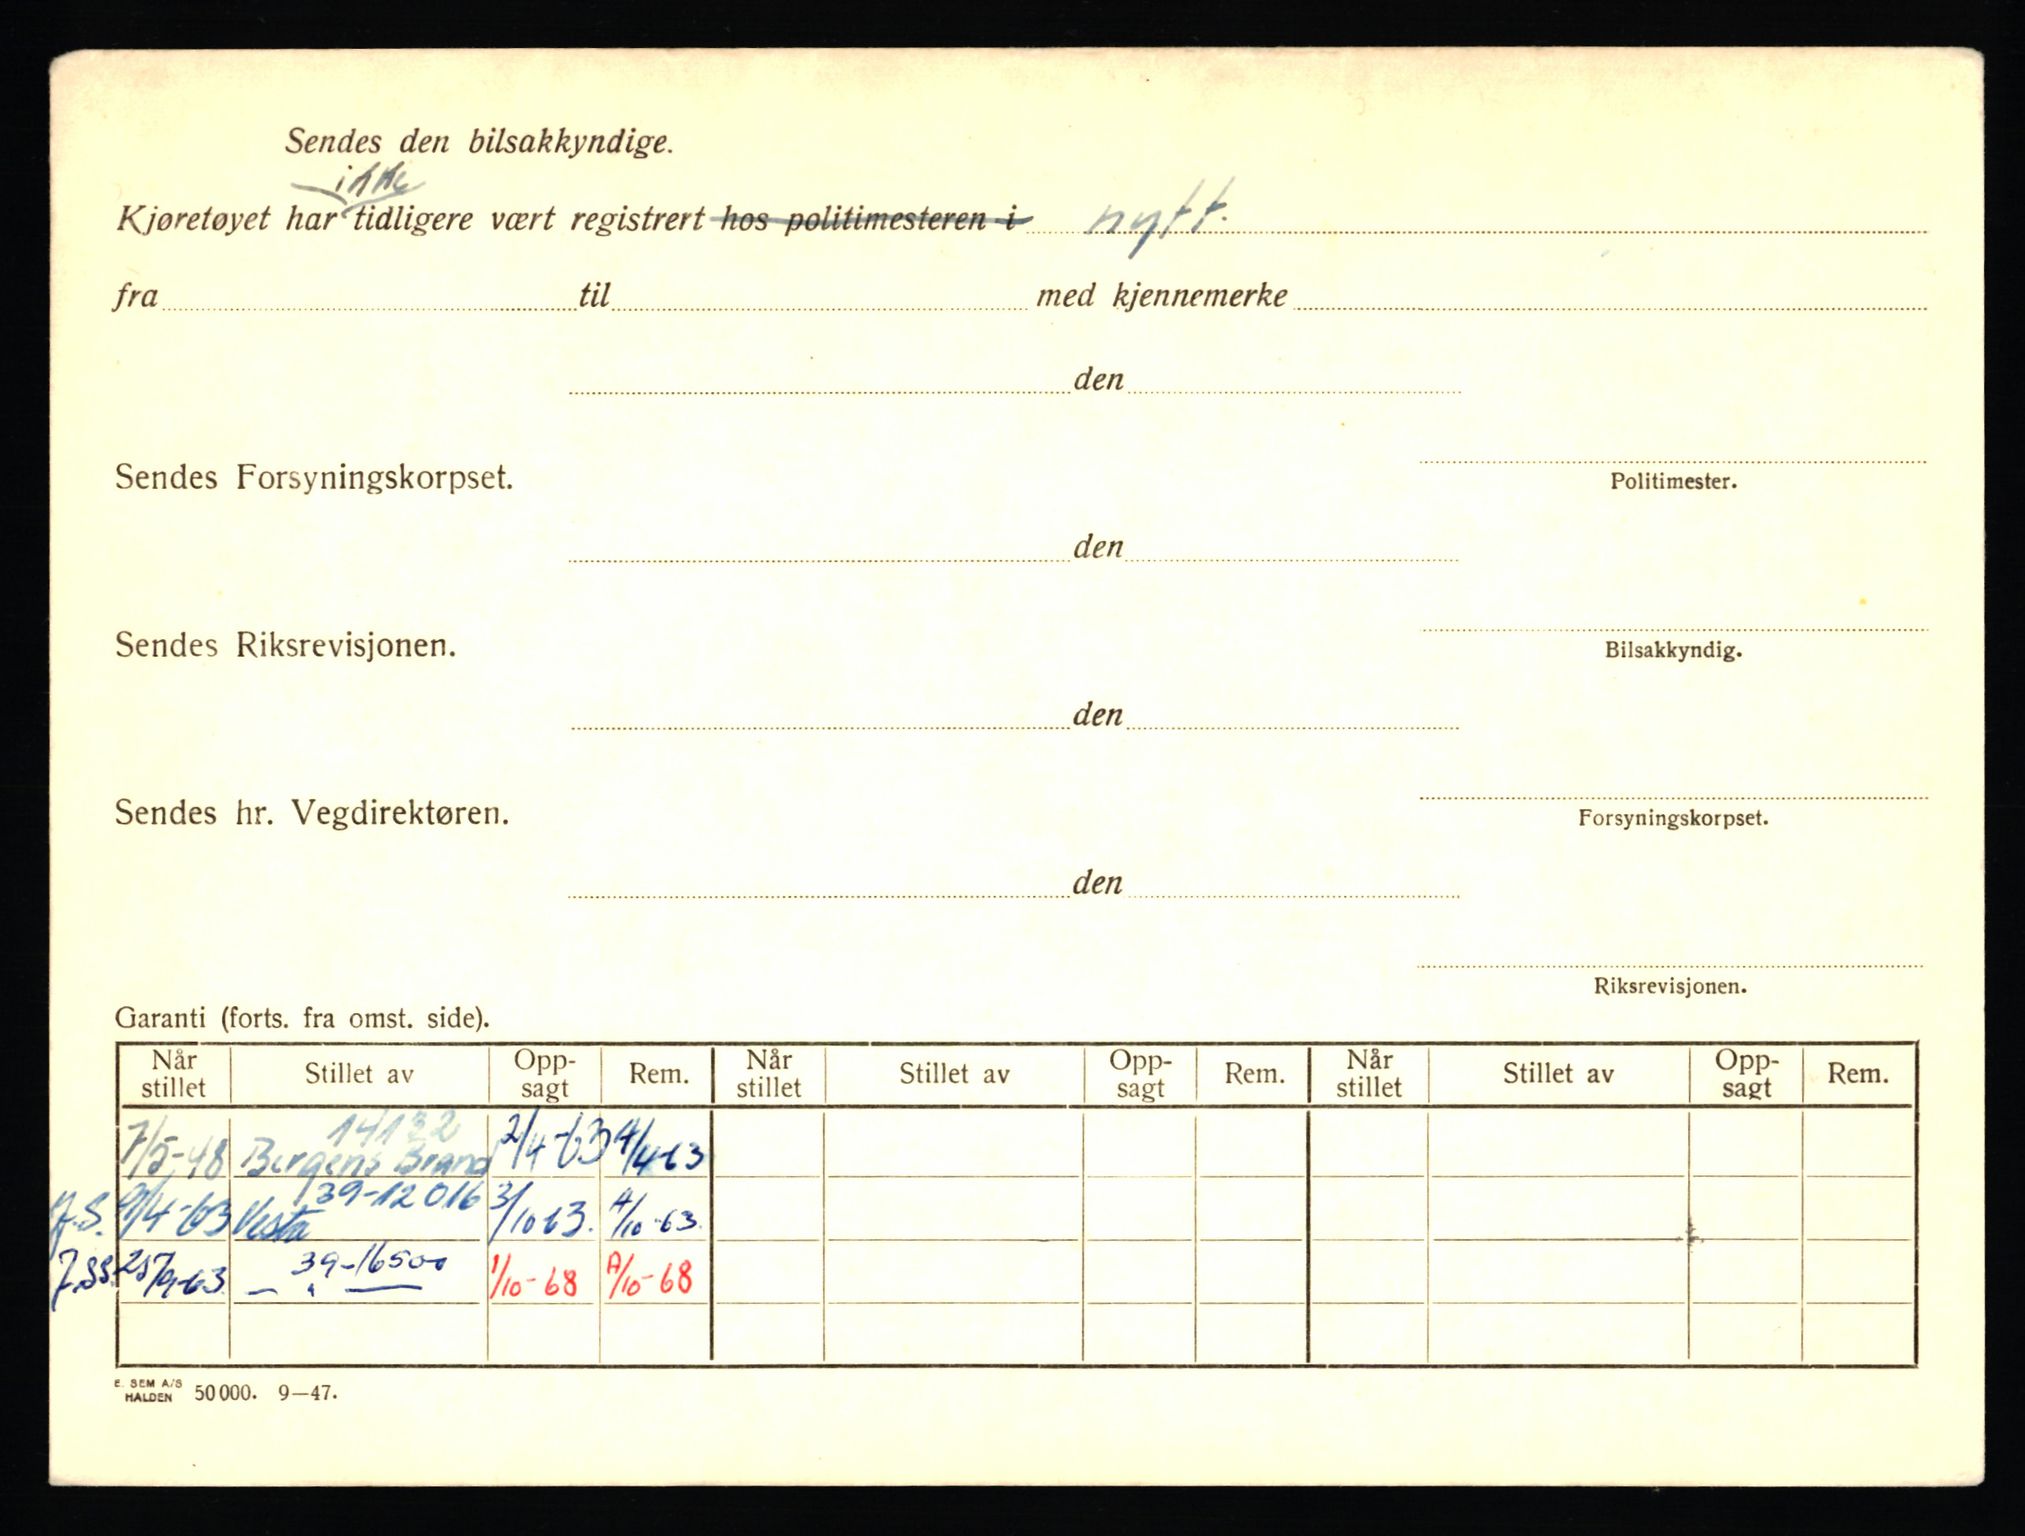 Sendes den bilsakkyndige.
ikke
Kjøretøyet har tidligere vært registrert hos politimesteren i nytt.
fra til med kjennemerke
den
Sendes Forsyningskorpset.
Politimester.
den
Sendes Riksrevisjonen.
Bilsakkyndig.
den
Sendes hr. Vegdirektøren.
Forsyningskorpset.
den
Riksrevisjonen.
Garanti (forts. fra omst. side).
Når stillet Stillet av Opp-sagt Rem. Når stillet Stillet av Opp-sagt Rem. Når stillet Stillet av Opp-sagt Rem.
14132
7/5-48 Bergens Brand 2/4-63 4/4-63
39-12016
J.S. 9/4-63 Vesta 3/10-63. 4/10-63.
39-16500
J.SS. 25/9-63 — " — 1/10-68 /10-68
E. SEM A/S
HALDEN 50000. 9—47.